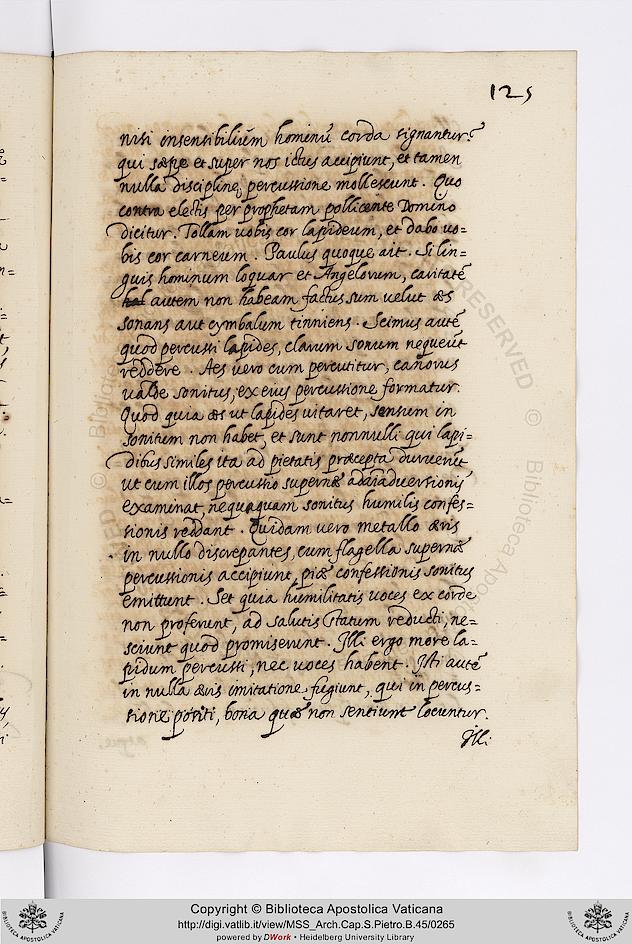 125
nisi insensibilium hominū corda signantur?
qui sæpe et super nos ictus accipiunt, et tamen
nulla disciplinę percussione mollescunt. Quo
contra electis per prophetam pollicente Domino
dicitur. Tollam uobis cor lapideum, et dabo uo=
bis cor carneum. Paulus quoque ait. Si lin=
guis hominum loquar et Angelorum, caritatē
autem non habeam factus sum velut æs
sonans aut cymbalum tinniens. Scimus autē
quod percussi lapides, clarum sonum nequeūt
reddere. Aes vero cum percutitur, canorus
valde sonitus, ex eius percussione formatur.
Quod quia æs ut lapides uitaret, sensum in
sonitum non habet, et sunt nonnulli qui lapi=
dibus similes ita ad pietatis præcepta durueru̅t
ut cum illos percussio supernæ adaiaduersionis
examinat, nequaquam sonitus humilis confes=
sionis reddant. Quidam uero metallo æris
in nullo discrepantes, cum flagella supernæ
percussionis accipiunt, piæ confessionis sonitus
emittunt. Set quia humilitatis uoces ex corde
non proferunt, ad salutis statum reducti, ne=
sciunt quod promiserunt. Illi ergo more la=
pidum percussi, nec uoces habent. Isti autē
in nulla æris imitatione fugiunt, qui in percus=
sione positi, bona quæ non sentiunt locuntur.
Illi
Copyright © Biblioteca Apostolica Vaticana
http://digi.vatlib.it/view/MSS_Arch.Cap.S.Pietro.B.45/0265
powered by DWork • Heidelberg University Library